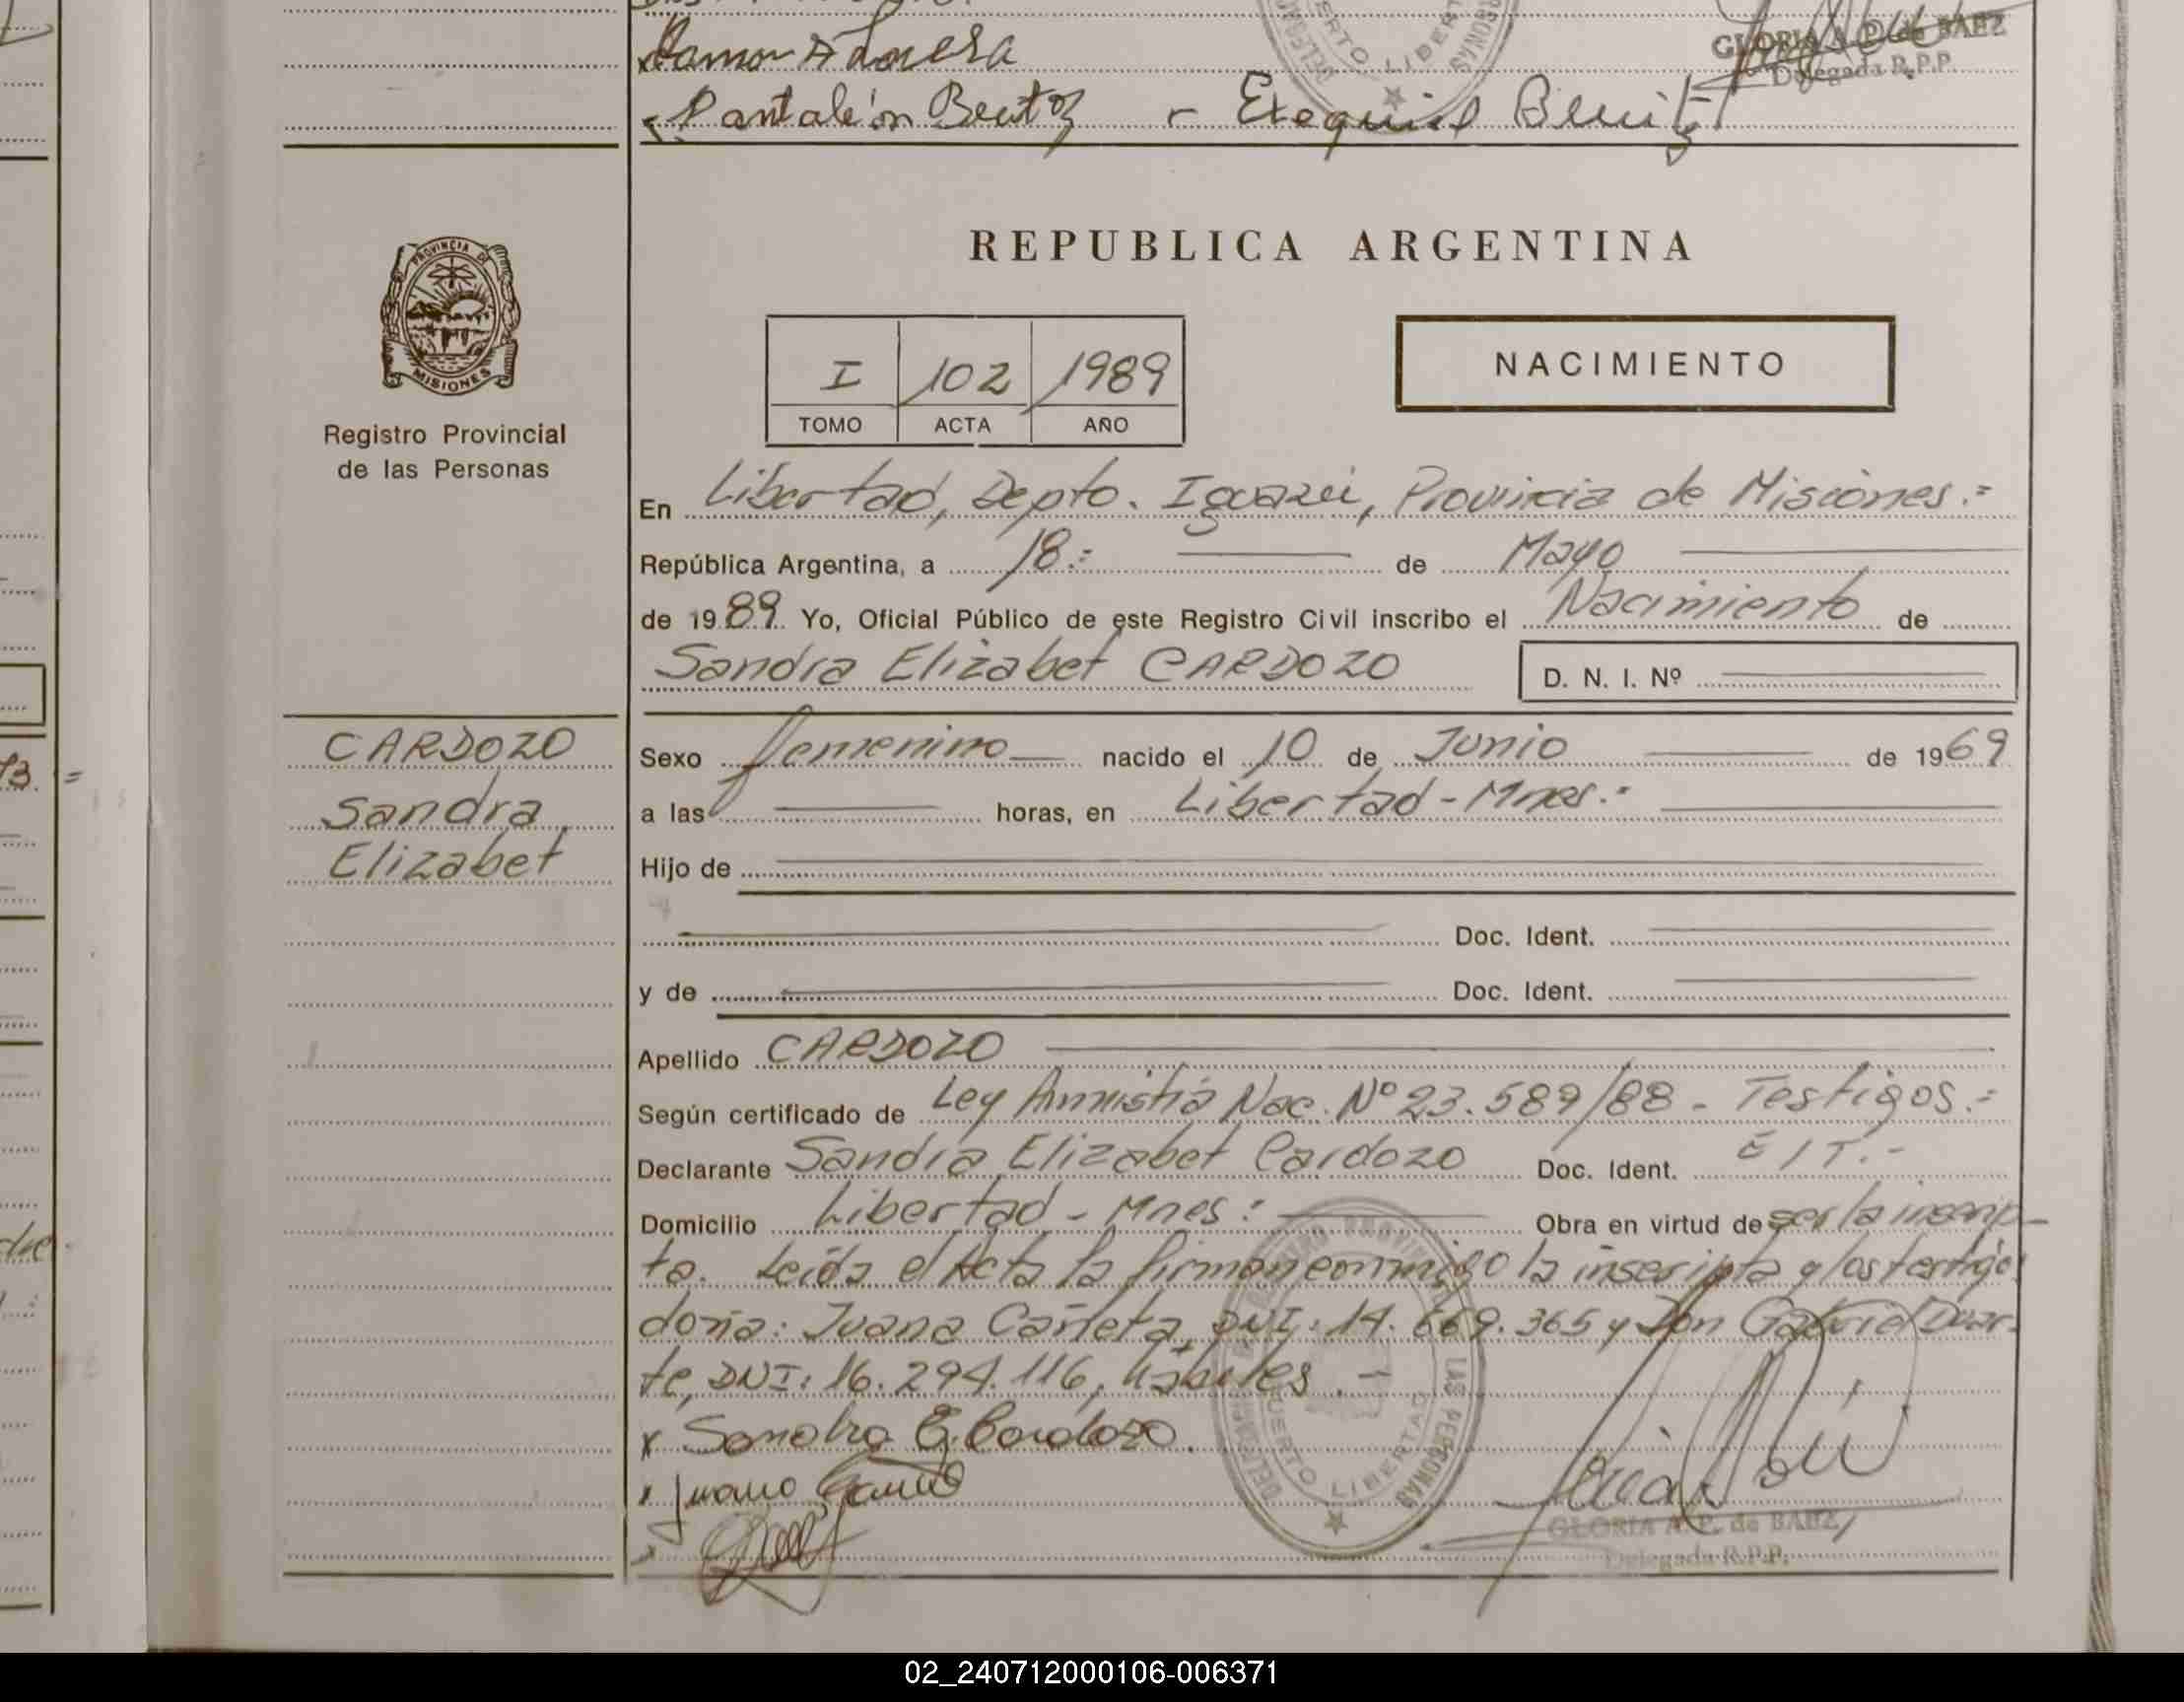 Pantaleón
REPUBLICA ARGENTINA
PROVINCIA DE
MISIONES
Registro Provincial
de las Personas
I 102 1989
TOMO ACTA AÑO
NACIMIENTO
En Libertad, Depto. Iguazú, Provincia de Misiones.=
República Argentina, a 18.= de Mayo
de 1989. Yo, Oficial Público de este Registro Civil inscribo el Nacimiento de
Sandra Elizabet CARDOZO D. N. I. Nº
CARDOZO
Sandra
Elizabet
Sexo femenino nacido el 10 de Junio de 1969
a las horas, en Libertad-Mnes.-
Hijo de
Doc. Ident.
y de Doc. Ident.
Apellido CARDOZO
Según certificado de Ley Amnistía Nac. Nº 23.589/88 - Testigos.=
Declarante Sandra Elizabet Cardozo Doc. Ident. E/T.-
Domicilio Libertad - Mnes: Obra en virtud de ser la inscrip-
ta. Leída el Acta la firman conmigo la inscripta y los testigos
doña: Juana DNI: 14.669.365 y Don Gabriel Duar-
te, DNI: 16.294.116, hábiles.-
x Sandra E. Cardozo.
DELEGACION PUERTO LIBERTAD
REGISTRO PROVINCIAL DE LAS PERSONAS
GLORIA A. P. de BAEZ
Delegada R.P.P.
02_240712000106-006371